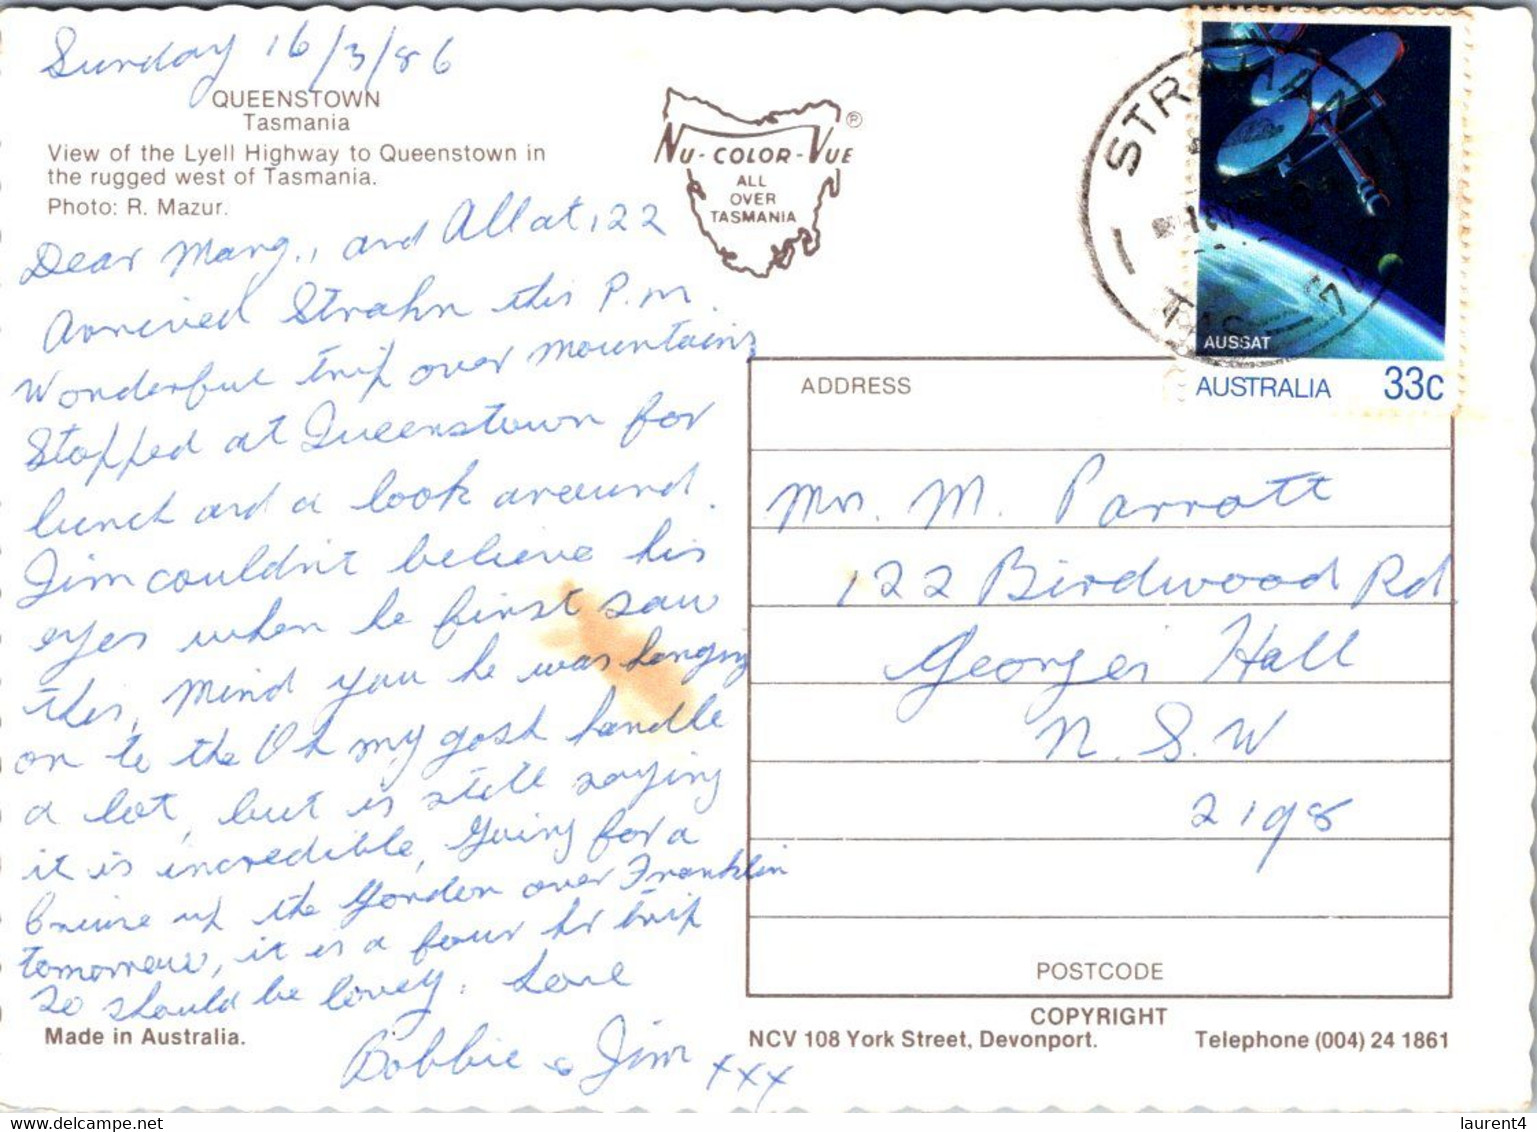 Sunday 16/3/86
QUEENSTOWN
Tasmania
View of the Lyell Highway to Queenstown in
the rugged west of Tasmania.
Photo: R. Mazur.
NU-COLOR-VUE ®
ALL
OVER
TASMANIA
Dear Marg., and All at 122
Arrived Strahn this P.m.
Wonderful trip over mountains
Stopped at Queenstown for
lunch and a look around.
Jim couldn't believe his
eyes when he first saw
this, Mind you he was hanging
on to the Oh my gosh handle
a lot, but is still saying
it is incredible, Going for a
Cruise up the Gordon over Franklin
tomorrow, it is a four hr trip
so should be lovey. Love
Bobbie & Jim xxx
Made in Australia.
STRAHAN
TAS
AUSSAT
AUSTRALIA 33c
ADDRESS
Mrs. M. Parrott
122 Birdwood Rd
Georges Hall
N.S.W
2198
POSTCODE
COPYRIGHT
NCV 108 York Street, Devonport. Telephone (004) 24 1861
www.delcampe.net
laurent4